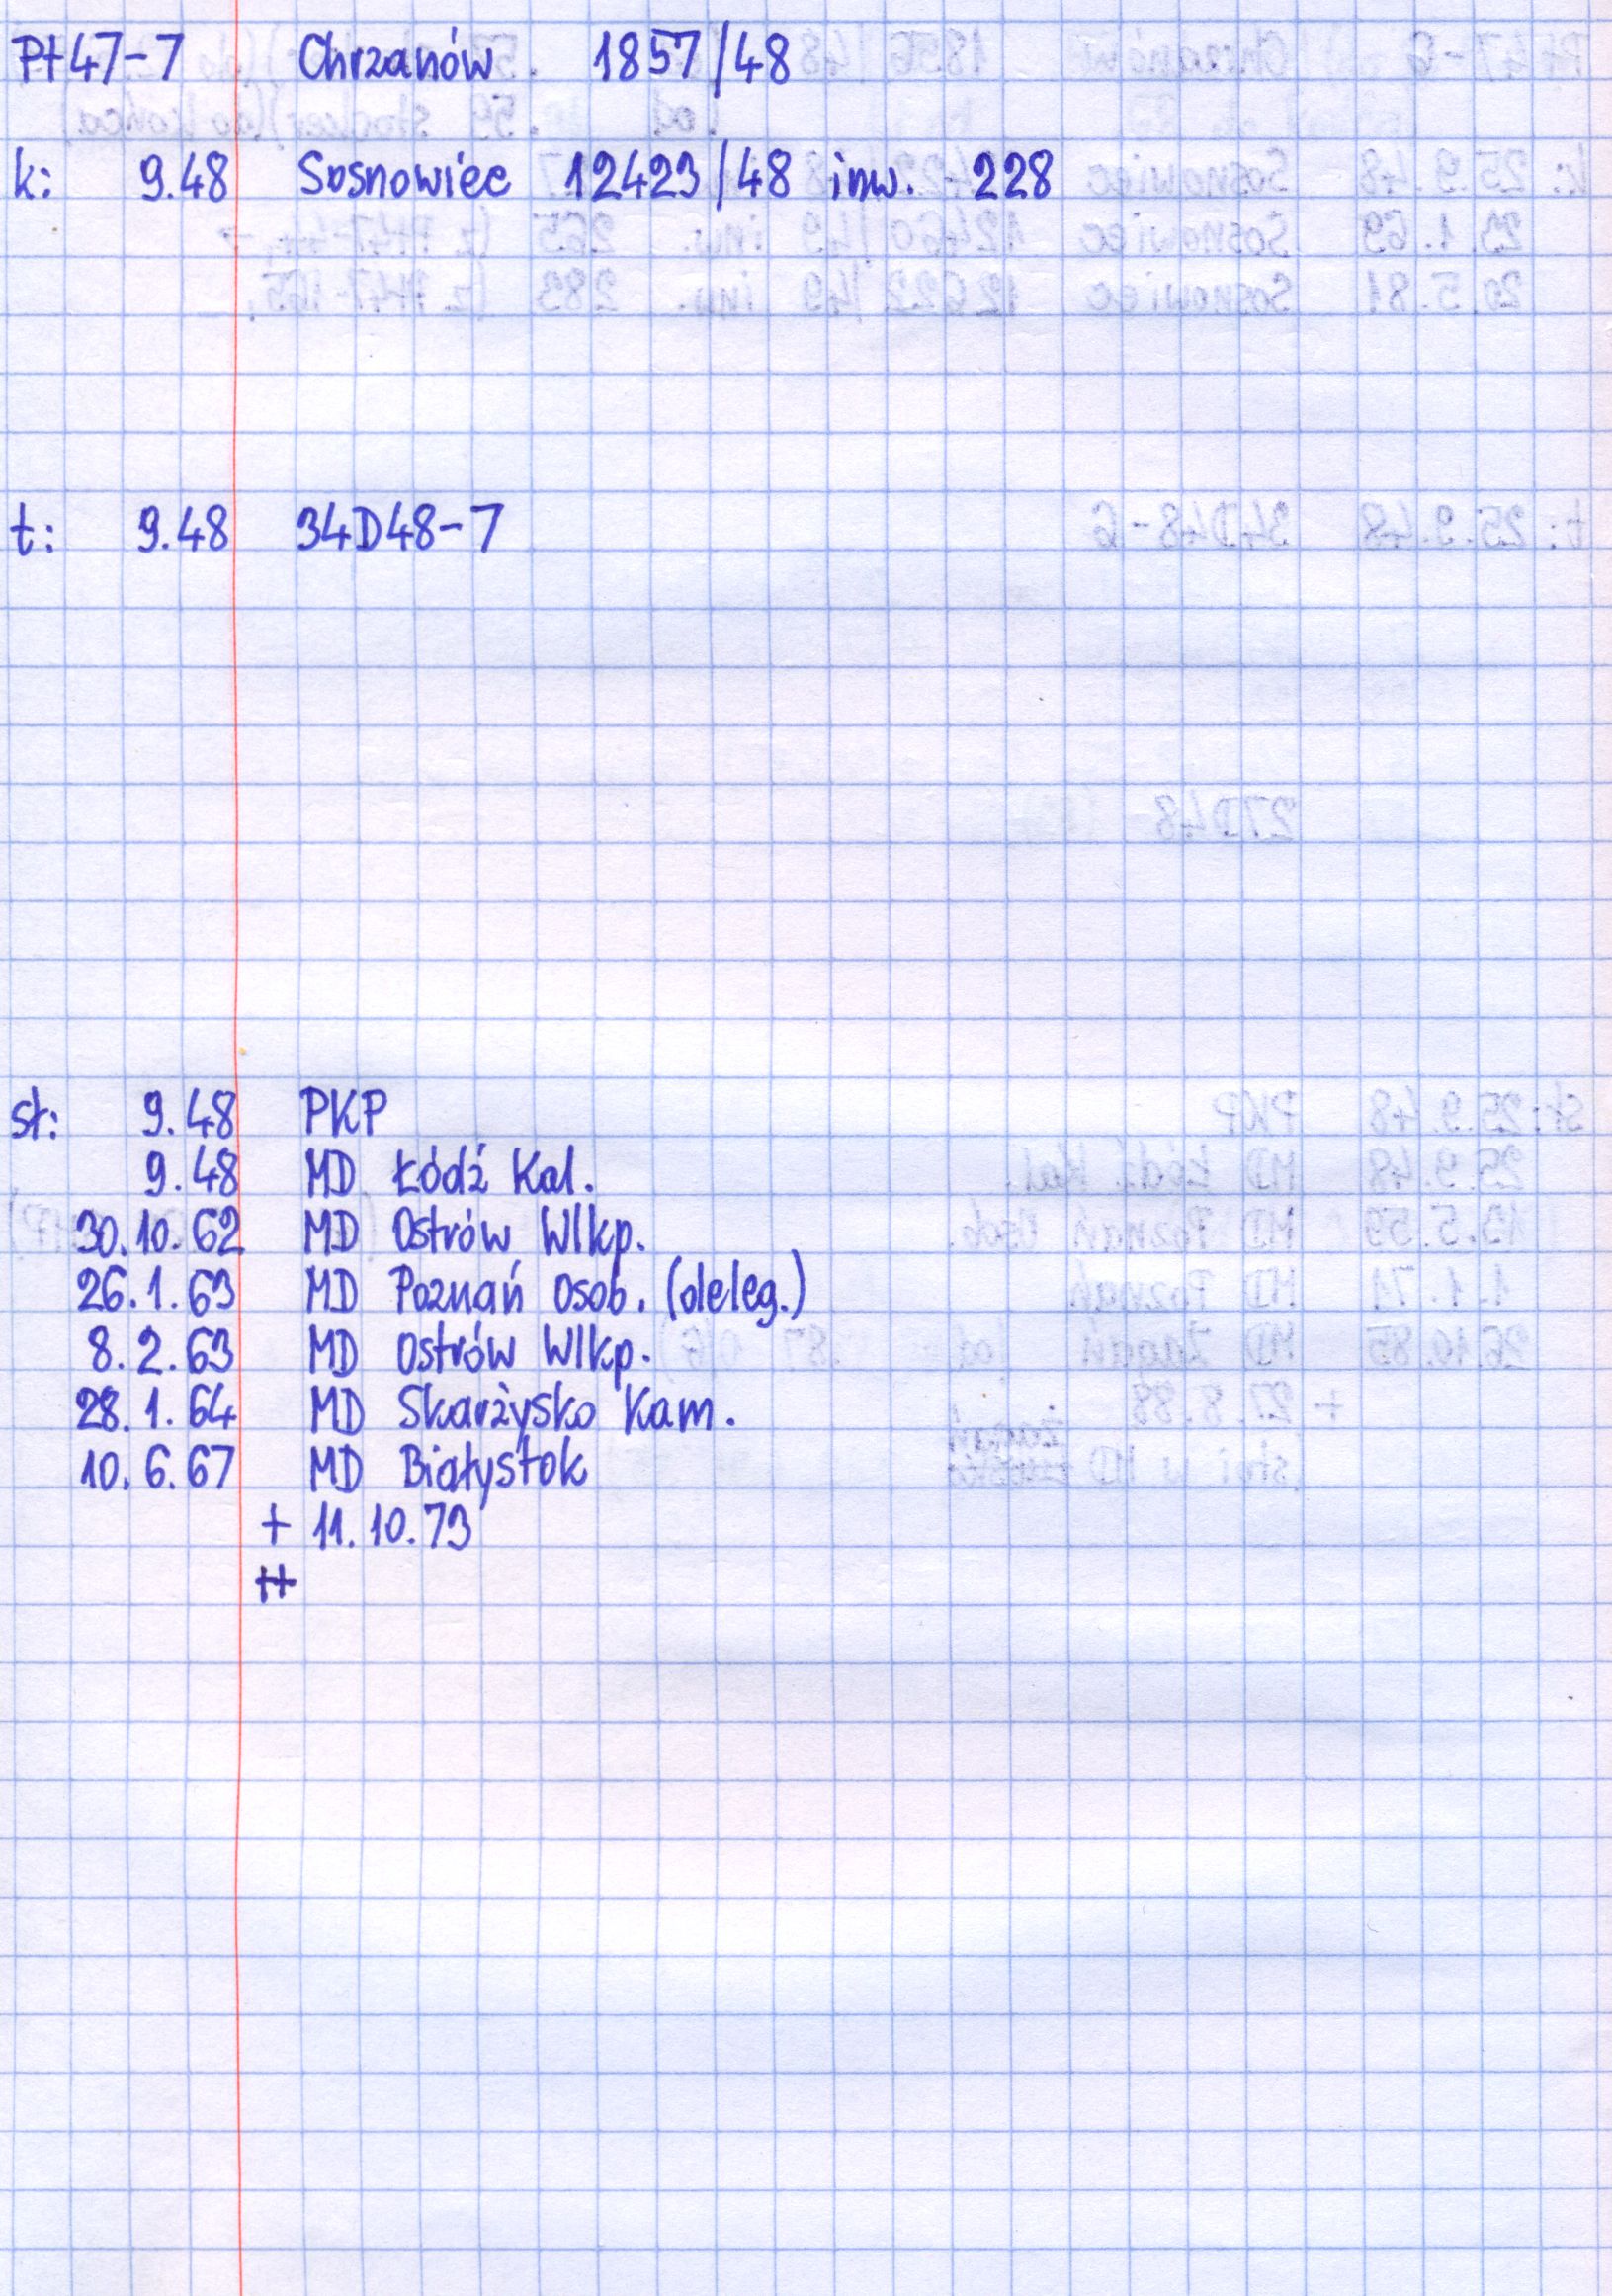 Pt47-7 Chrzanów 1857/48
k: 9.48 Sosnowiec 12423/48 inw. 228
t: 9.48 34D48-7
st: 9.48 PKP
9.48 MD Łódź Kal.
30.10.62 MD Ostrów Wlkp.
26.1.63 MD Poznań osob. (deleg.)
8.2.63 MD Ostrów Wlkp.
28.1.64 MD Skarżysko Kam.
10.6.67 MD Białystok
+ 11.10.73
++